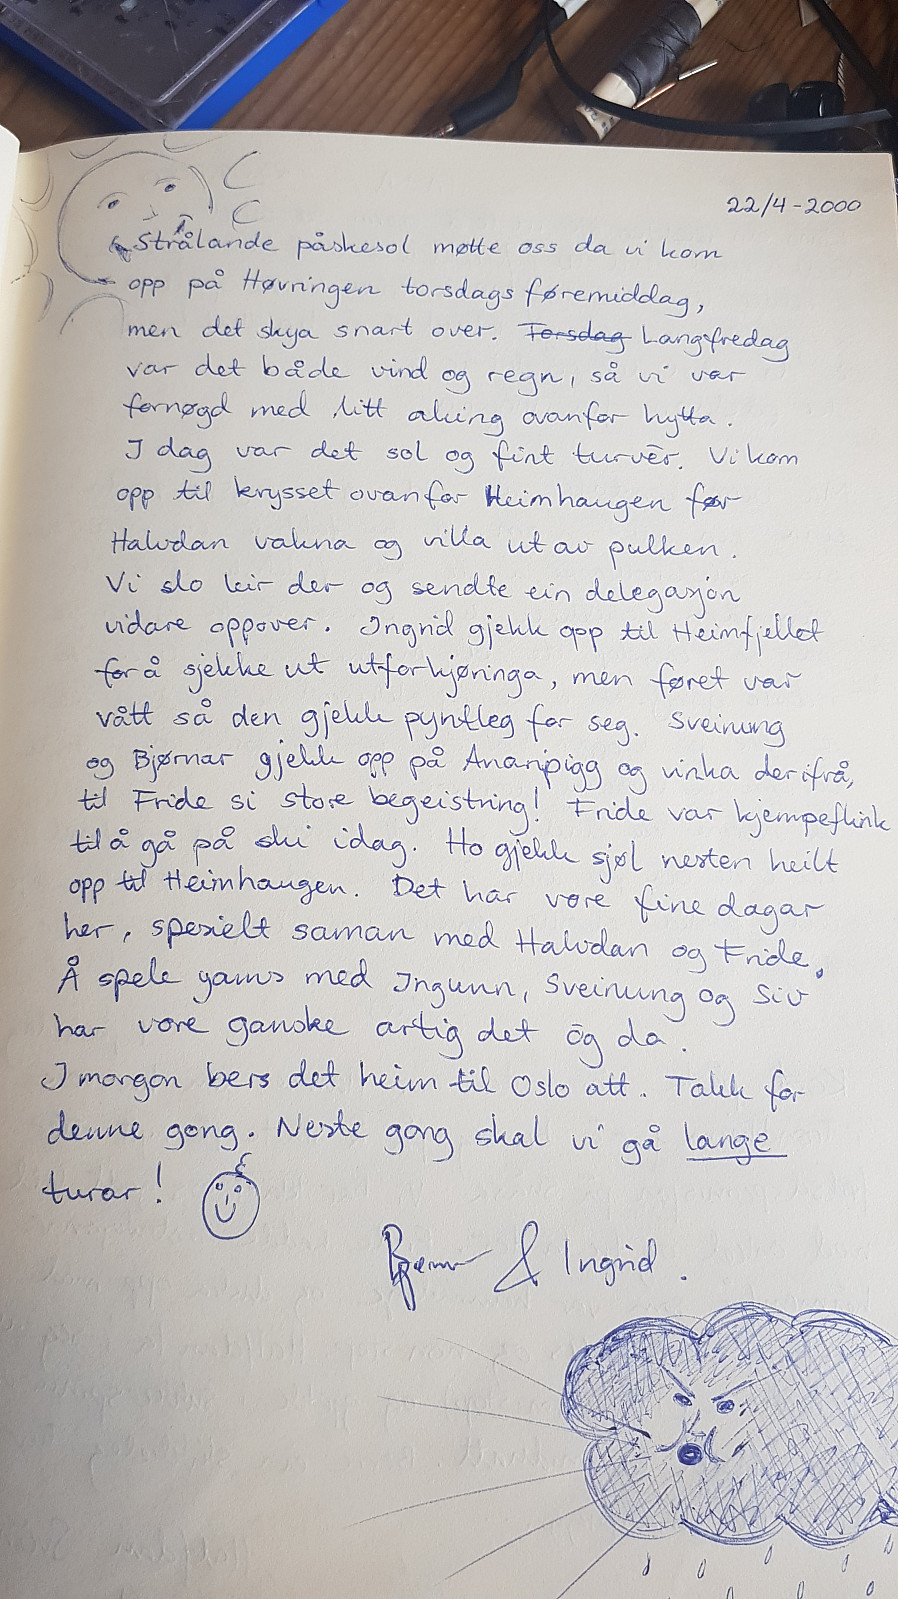 22/4-2000
Strålande påskesol møtte oss da vi kom
opp på Høvringen torsdags føremiddag,
men det skya snart over. Torsdag Langfredag
var det både vind og regn, så vi var
fornøgd med litt aking ovanfor hytta.
I dag var det sol og fint turvêr. Vi kom
opp til krysset ovanfor Heimhaugen før
Halvdan vakna og villa ut av pulken.
Vi slo leir der og sendte ein delegasjón
vidare oppover. Ingrid gjekk opp til Heimfjellet
for å sjekke ut utforkjøringa, men føret var
vått så den gjekk pyntleg for seg. Sveinung
og Bjørnar gjekk opp på Anaripigg og vinka derifrå,
til Fride si store begeistring! Fride var kjempeflink
til å gå på ski idag. Ho gjekk sjøl nesten heilt
opp til Heimhaugen. Det har vore fine dagar
her, spesielt saman med Halvdan og Fride.
Å spele yams med Ingunn, Sveinung og Siv
har vore ganske artig det òg da.
I morgon bers det heim til Oslo att. Takk for
denne gong. Neste gong skal vi gå lange
turar!
& Ingrid.